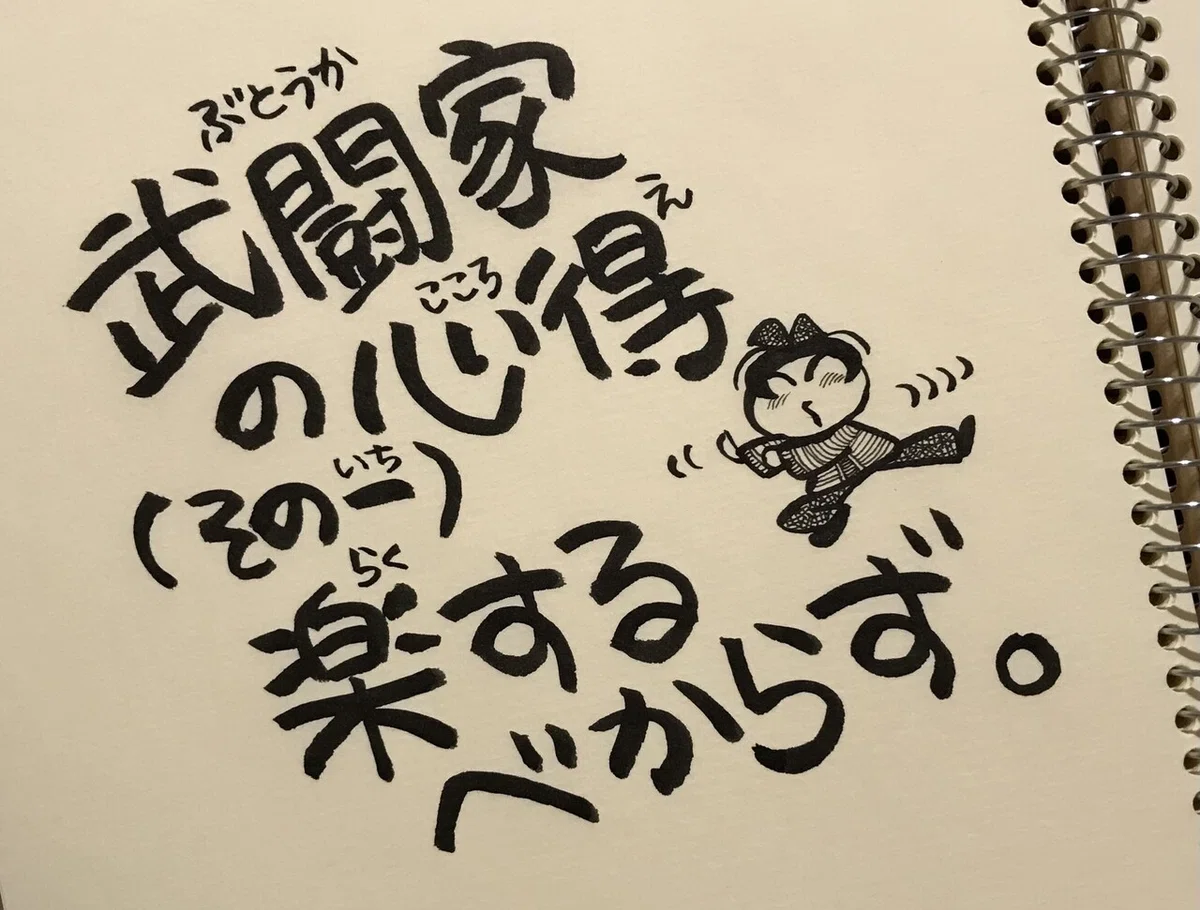 ぶとうか
武闘家
こころ え
の心得
いち
(その一)
らく
楽する
べからず。